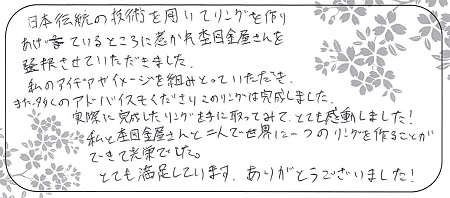 日本伝統の技術を用いてリングを作り
あげているところに惹かれ杢目金屋さんを
登板させていただきました。
私のアイデアやイメージを組みとっていただき、
また、多くのアドバイスもくださりこのリングは完成しました。
実際に完成したリングを手に取ってみて、とても感動しました!
私と杢目金屋さんと二人で世界に一つのリングを作ることが
できて光栄でした。
とても満足しています。ありがとうございました!